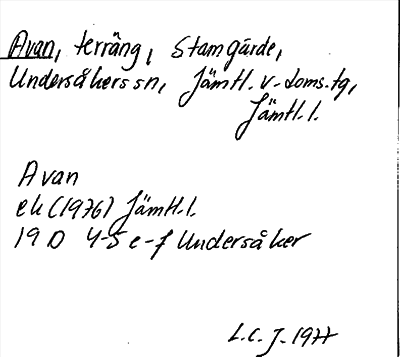 Avan, terräng, Stamgärde,
Undersåkers sn, Jämtl. v. doms. tg,
Jämtl. l.
Avan
ek (1976) Jämtl. l.
19 D 4-5 e-f Undersåker
L. C. J. 1977